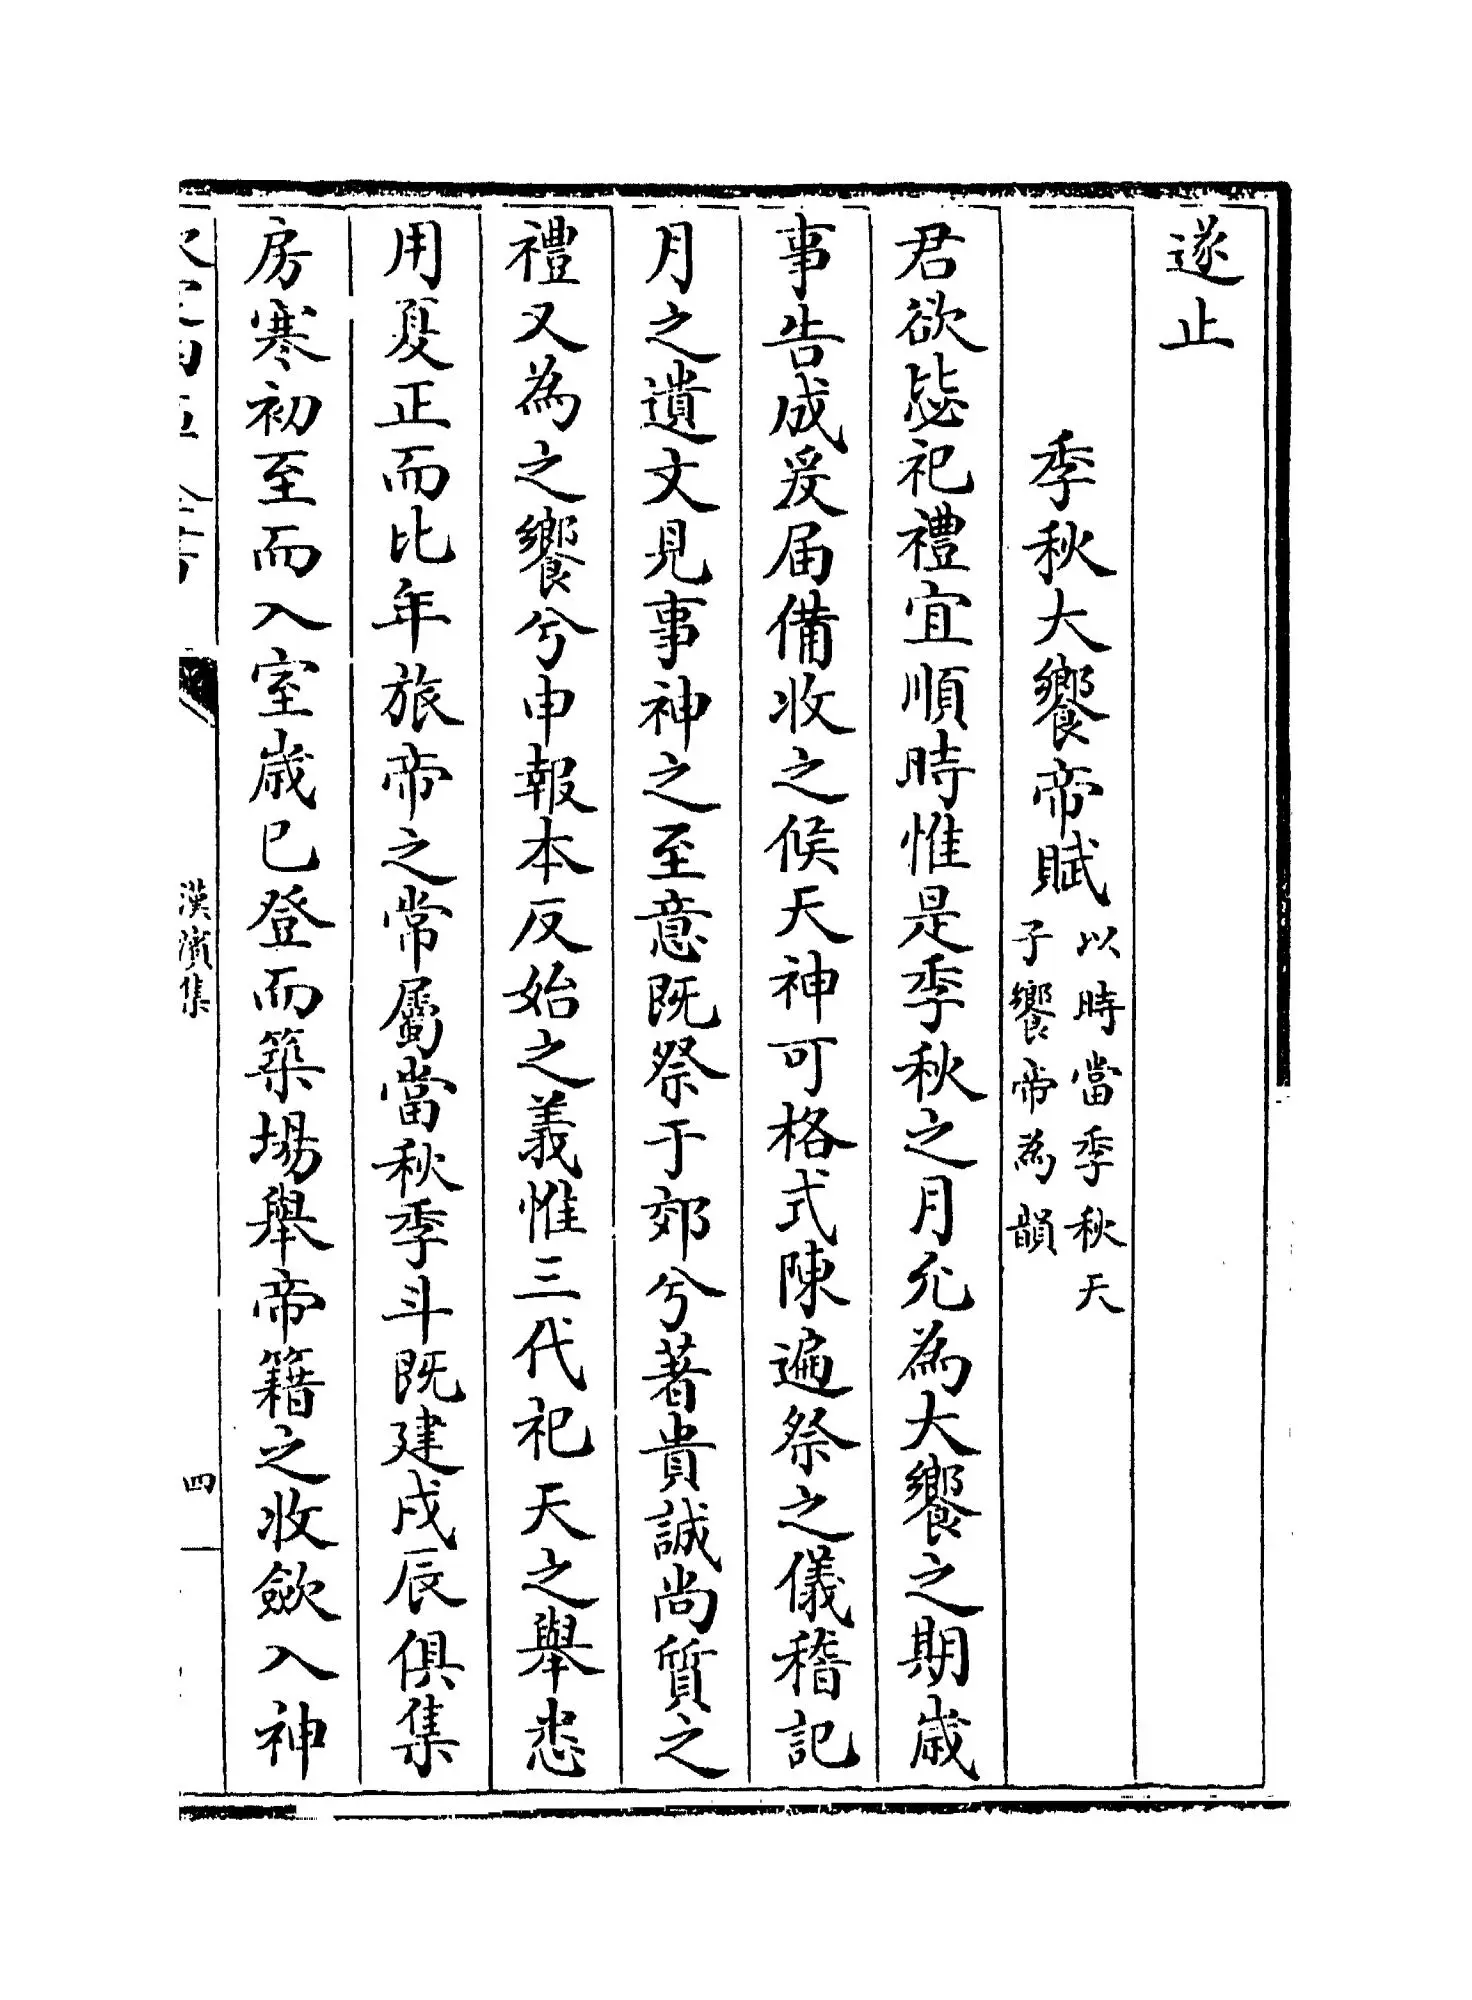 遂止
季秋大饗帝賦以時當季秋天
子饗帝為韻
君欲毖祀禮宜順時惟是季秋之月允為大饗之期歳
事告成爰届備收之候天神可格式陳遍祭之儀稽記
月之遺文見事神之至意既祭于郊兮著貴誠尚質之
禮又為之饗兮申報本反始之義惟三代祀天之舉悉
用夏正而比年旅帝之常屬當秋季斗既建戌辰俱集
房寒初至而入室歳已登而築場舉帝籍之收斂入神
漢濱集
四